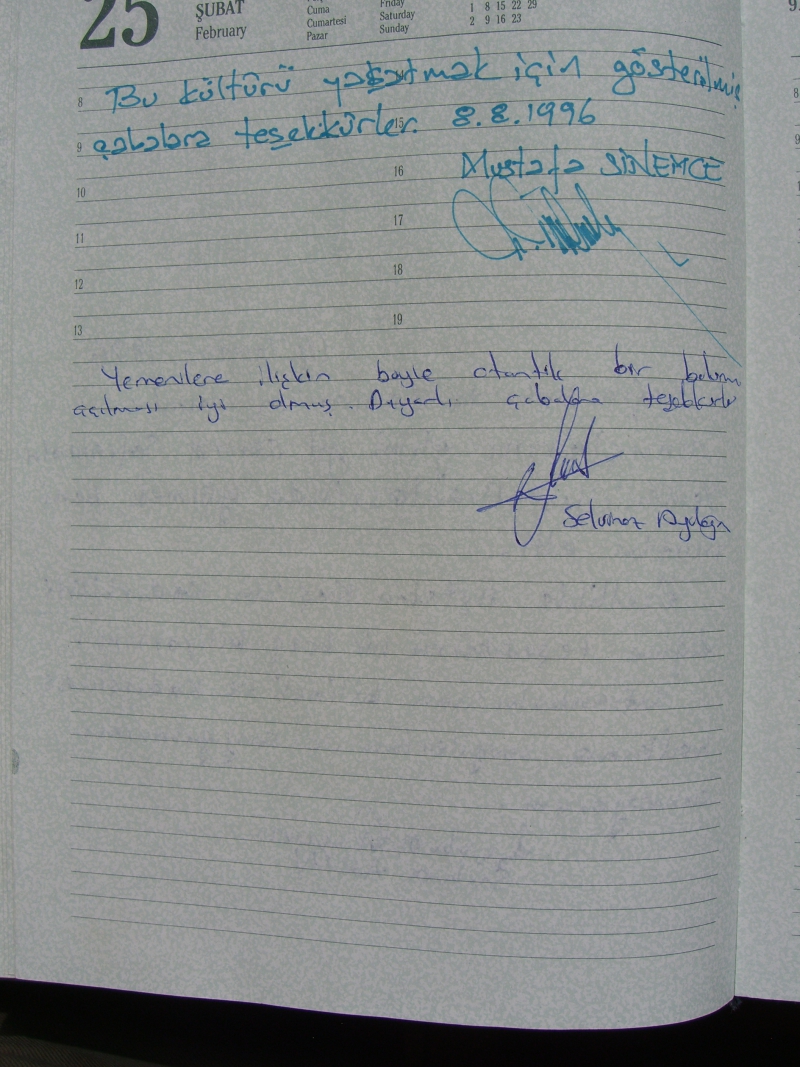 25 ŞUBAT February
Cuma Friday 1 8 15 22 29
Cumartesi Saturday 2 9 16 23
Pazar Sunday
8 Bu kültürü yaşatmak için gösterilmiş
9 çabalara teşekkürler. 15 8.8.1996
10 16 Mustafa SİNEMCE
11 17
12 18
13 19
Yemenilere ilişkin böyle otantik bir bölüm
açılması iyi olmuş. çabalara teşekkürler